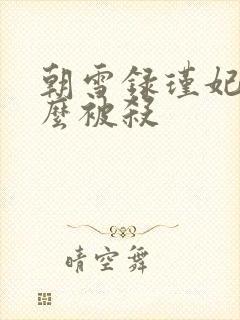 朝雪録瑾妃
麼被殺
晴空舞